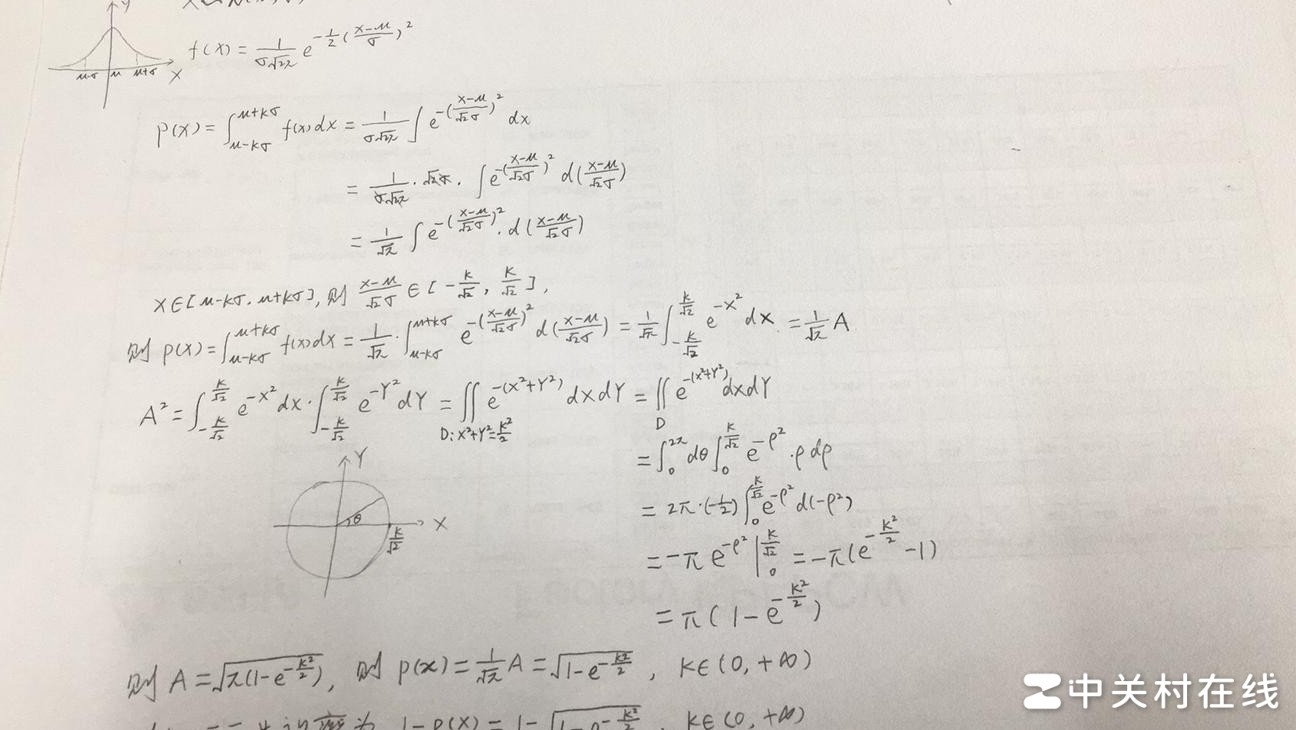 y
μ-σ μ μ+σ x
f(x) = \frac{1}{σ\sqrt{2π}} e^{-\frac{1}{2}(\frac{x-μ}{σ})^2}
P(x) = \int_{μ-kσ}^{μ+kσ} f(x)dx = \frac{1}{σ\sqrt{2π}} \int e^{-(\frac{x-μ}{\sqrt{2}σ})^2} dx
= \frac{1}{σ\sqrt{2π}} · \sqrt{2}σ · \int e^{-(\frac{x-μ}{\sqrt{2}σ})^2} d(\frac{x-μ}{\sqrt{2}σ})
= \frac{1}{\sqrt{π}} \int e^{-(\frac{x-μ}{\sqrt{2}σ})^2} · d(\frac{x-μ}{\sqrt{2}σ})
x∈[μ-kσ, μ+kσ], 则 \frac{x-μ}{\sqrt{2}σ} ∈ [-\frac{k}{\sqrt{2}}, \frac{k}{\sqrt{2}}],
则 P(x) = \int_{μ-kσ}^{μ+kσ} f(x)dx = \frac{1}{\sqrt{π}} · \int_{μ-kσ}^{μ+kσ} e^{-(\frac{x-μ}{\sqrt{2}σ})^2} d(\frac{x-μ}{\sqrt{2}σ}) = \frac{1}{\sqrt{π}} \int_{-\frac{k}{\sqrt{2}}}^{\frac{k}{\sqrt{2}}} e^{-x^2} dx = \frac{1}{\sqrt{π}} A
A^2 = \int_{-\frac{k}{\sqrt{2}}}^{\frac{k}{\sqrt{2}}} e^{-x^2} dx · \int_{-\frac{k}{\sqrt{2}}}^{\frac{k}{\sqrt{2}}} e^{-Y^2} dY = \iint_{D: x^2+Y^2=\frac{k^2}{2}} e^{-(x^2+Y^2)} dxdY = \iint_D e^{-(x^2+Y^2)} dxdY
= \int_0^{2π} dθ \int_0^{\frac{k}{\sqrt{2}}} e^{-ρ^2} · ρdρ
= 2π·(-\frac{1}{2}) \int_0^{\frac{k}{\sqrt{2}}} e^{-ρ^2} d(-ρ^2)
= -π e^{-ρ^2} |_0^{\frac{k}{\sqrt{2}}} = -π(e^{-\frac{k^2}{2}} - 1)
= π(1 - e^{-\frac{k^2}{2}})
Y
θ X
\frac{k}{\sqrt{2}}
则 A = \sqrt{π(1-e^{-\frac{k^2}{2}})}, 则 P(x) = \frac{1}{\sqrt{π}} A = \sqrt{1-e^{-\frac{k^2}{2}}}, k∈(0, +∞)
1-P(x) = 1-\sqrt{1-e^{-\frac{k^2}{2}}}, k∈(0, +∞)
中关村在线